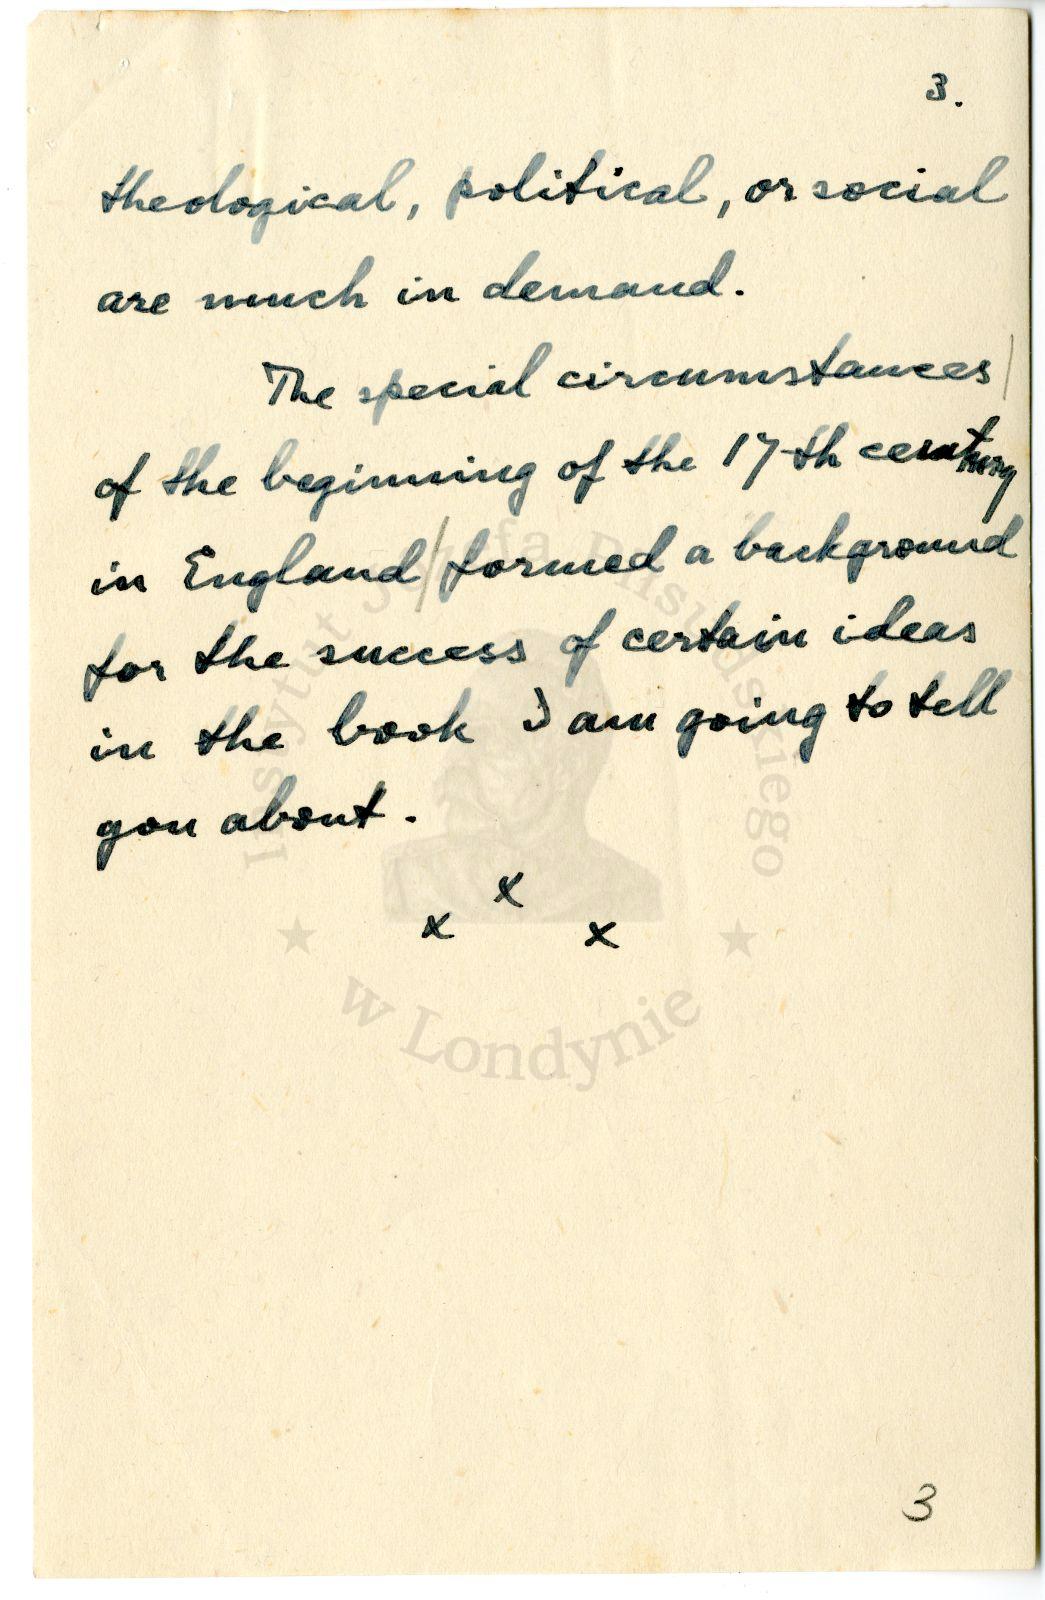 3.
theological, political, or social
are much in demand.
The special circumstances
of the beginning of the 17-th century
in England formed a background
for the success of certain ideas
in the book I am going to tell
you about.
x
x x
Instytut Józefa Piłsudskiego
w Londynie
3